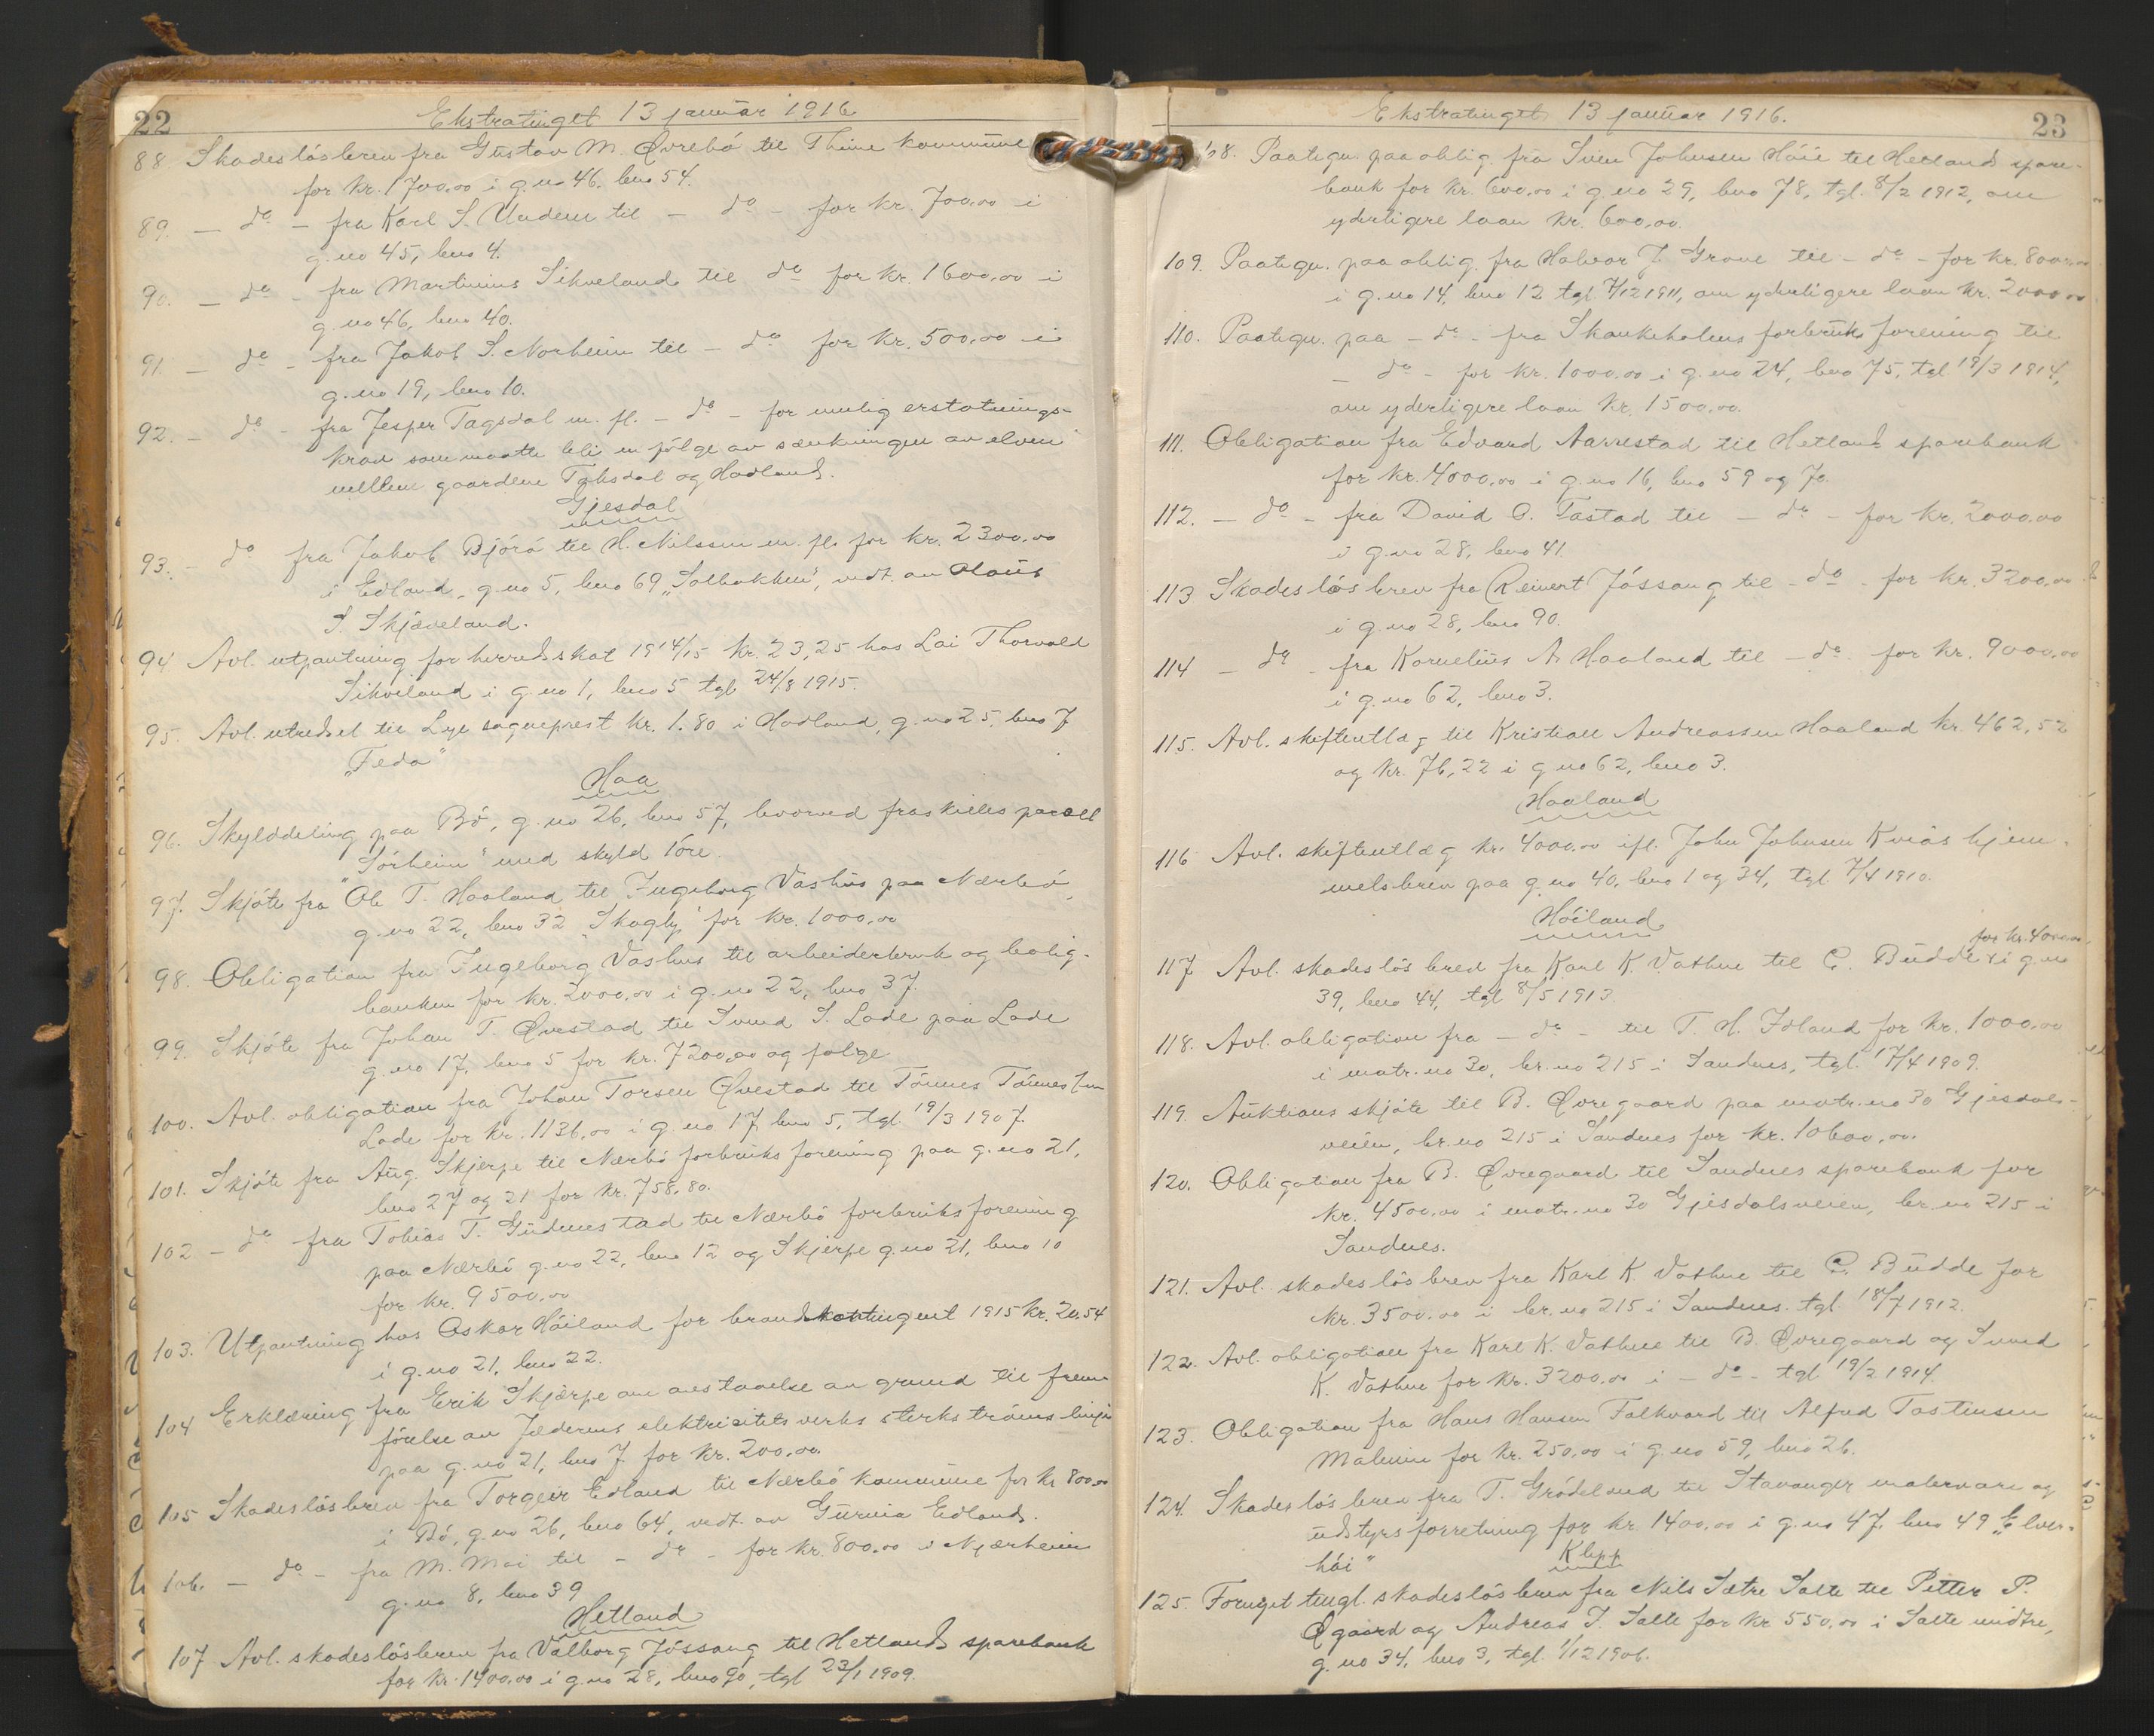 22
Ekstratinget 13 januar 1916
88. Skadeslösbrev fra Gustav M. Øvrebö til Thime kommune
for kr. 1700.00 i g.no 46, bno 54.
89. - do - fra Karl S. Undem til - do - for kr. 700.00 i
g.no 45, bno 4.
90. - do - fra Martinius Sikveland til do for kr. 1600.00 i
g.no 46, bno 40.
91. - do - fra Jakob S. Norheim til - do for kr. 500.00 i
g.no 19, bno 10.
92. - do - fra Jesper Tagsdal m. fl. - do - for mulig erstatnings-
krav som maatte bli en fölge av sænkningen av elven
mellem gaardene Taksdal og Hadland.
Gjesdal
93. - do fra Jakob Björö til H. Nilssen m. fl. for kr. 2300.00
i Edland, g.no 5, bno 69 „Solbakken", vedt. av Olaus
S. Skjæveland.
94 Avl. utpantning for herredsskat 1914/15 kr. 23,25 hos Lai Thorvald
Sikveland i g.no 1, bno 5 tgl 24/8 1915.
95. Avl. utredsel til Lye sogneprest kr. 1.80 i Hadland, g.no 25, bno 7
„Feda"
Haa
96. Skylddeling paa Bö, g.no 26, bno 57, hvorved fraskilles parcell
„Sörheim" med skyld 1 öre.
97. Skjöte fra Ole T. Haaland til Ingeborg Vashus paa Nærbö,
g.no 22, bno 32 „Skogly" for kr. 1000.00
98. Obligation fra Ingeborg Vashus til arbeiderbruk og bolig-
banken for kr. 2000.00 i g.no 22, bno 37.
99. Skjöte fra Johan T. Øvestad til Svend S. Lode paa Lode
g.no 17, bno 5 for kr. 7200.00 og folge
100. Avl. obligation fra Johan Torsen Øvestad til Tönnes Tönnessen
Lode for kr. 1136.00 i g.no 17, bno 5, tgl 19/3 1907.
101. Skjöte fra Aug. Skjerpe til Nærbö forbruksforening paa g.no 21,
bno 27 og 21 for kr. 758.80.
102 - do fra Tobias T. Gudmestad til Nærbö forbruksforening
paa Nærbö g.no 22, bno 12 og Skjerpe g.no 21, bno 10
for kr. 9500.00
103. Utpantning hos Oskar Höiland for brandkontingent 1915 kr. 20,54
i g.no 21, bno 22.
104 Erklæring fra Erik Skjærpe om avstaaelse av grund til frem-
förelse av Jæderens elektricitetsverks sterkströms linje
paa g.no 21, bno 7 for kr. 200.00.
105 Skadeslösbrev fra Torgeir Edland til Nærbö kommune for kr 800.00
i Bö, g.no 26, bno 64, vedt. av Gurina Edland.
106. - do - fra M. Moi til - do - for kr. 800.00 i Njærheim
g.no 8, bno 39
Hetland
107 Avl. skadeslösbrev fra Valborg Jössang til Hetlands sparebank
for kr. 1400.00 i g.no 28, bno 90, tgl 23/1 1909.
Ekstratinget 13 januar 1916.
23
108. Paategn. paa oblig. fra Sven Johnsen Höie til Hetlands spare-
bank for kr. 600.00 i g.no 29, bno 78, tgl. 8/2 1912, om
yderligere laan kr. 600.00.
109. Paategn. paa oblig. fra Halvor J. Grove til - do - for kr. 8000.00
i g.no 14, bno 12 tgl. 7/12 1911, om yderligere laan kr. 2000.00
110. Paategn. paa - do - fra Skankeholens forbruksforening til
- do - for kr. 1000.00 i g.no 24, bno 75, tgl. 19/3 1914,
om yderligere laan kr. 1500.00.
111. Obligation fra Edvard Aarrestad til Hetlands sparebank
for kr. 4000.00 i g.no 16, bno 59 og 70.
112. - do - fra David O. Tastad til - do - for kr. 2000.00
i g.no 28, bno 41
113 Skadeslösbrev fra Reinert Jössang til - do - for kr. 3200.00
i g.no 28, bno 90.
114 - do - fra Kornelius A. Haaland til - do - for kr. 9000.00
i g.no 62, bno 3.
115. Avl. skifteutlæg til Kristian Andreassen Haaland kr. 462,52
og kr. 76,22 i g.no 62, bno 3.
Haaland
116 Avl. skifteutlæg kr. 4000.00 ifl. John Johnsen Kviás hjem-
melsbrev paa g.no 40, bno 1 og 34, tgl. 7/4 1910.
Höiland
117 Avl. skadeslösbrev fra Karl K. Vathne til C. Budde for kr. 4000.00, i g.no
39, bno 44, tgl 8/5 1913.
118. Avl. obligation fra - do - til T. H. Idland for kr. 1000.00
i matr. no 30, br. no 215 i Sandnes, tgl. 17/4 1909.
119. Auktions skjöte til B. Øvregaard paa matr. no 30 Gjesdals-
veien, br. no 215 i Sandnes for kr. 10600.00.
120. Obligation fra B. Øvregaard til Sandnes sparebank for
kr. 4500.00 i matr. no 30 Gjesdalsveien, br. no 215 i
Sandnes.
121. Avl. skadeslösbrev fra Karl K. Vathne til C. Budde for
kr. 3500.00 i br. no 215 i Sandnes. tgl. 18/7 1912.
122. Avl. obligation fra Karl K. Vathne til B. Øvregaard og Svend
K. Vathne for kr. 3200.00 i - do - tgl 19/2 1914.
123. Obligation fra Hans Hansen Falkvard til Alfred Tostensen
Malmin for kr. 250.00 i g.no 59, bno 26.
124. Skadeslösbrev fra T. Grödeland til Stavanger malervare og
udstyrsforretning for kr. 1400.00 i g.no 47, bno 49 „Elver-
höi"
Klepp
125. Fornyet tingl. skadeslösbrev fra Nils Sætre Salte til Petter P.
Øgaard og Andreas J. Salte for kr 550.00 i Salte midtre,
g.no 34, bno 3, tgl. 1/12 1906.